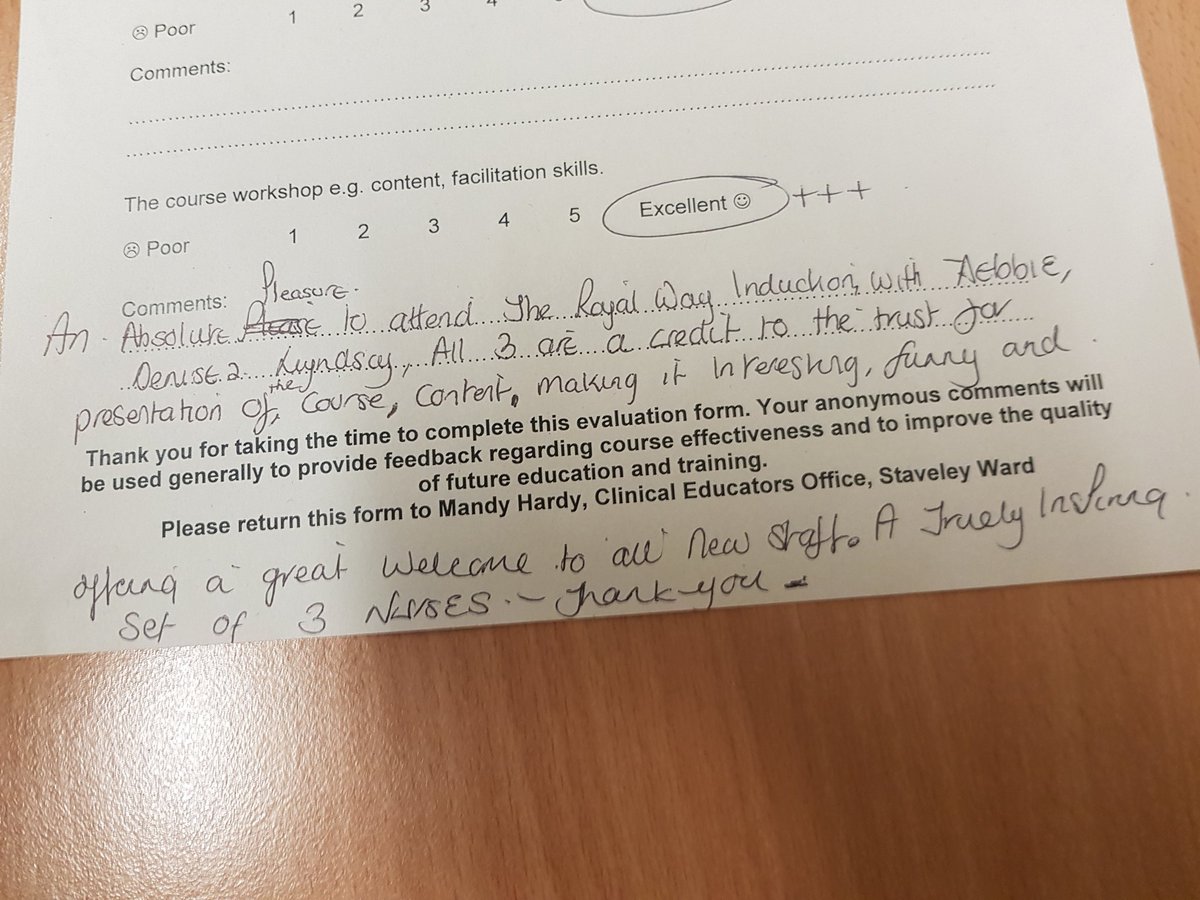 ☹ Poor 1 2 3 4
Comments:
The course workshop e.g. content, facilitation skills.
☹ Poor 1 2 3 4 5 Excellent ☺ +++
Comments: Pleasure.
An Absolute Please to attend The Royal Way Induction, with Debbie,
Denise & Lyndsay, All 3 are a credit to the trust for
presentation of the Course, Content, making it interesting, funny and
Thank you for taking the time to complete this evaluation form. Your anonymous comments will
be used generally to provide feedback regarding course effectiveness and to improve the quality
of future education and training.
Please return this form to Mandy Hardy, Clinical Educators Office, Staveley Ward
offering a great Welcome to all new staff. A Truely Inspiring
Set of 3 NURSES. - Thank-you -